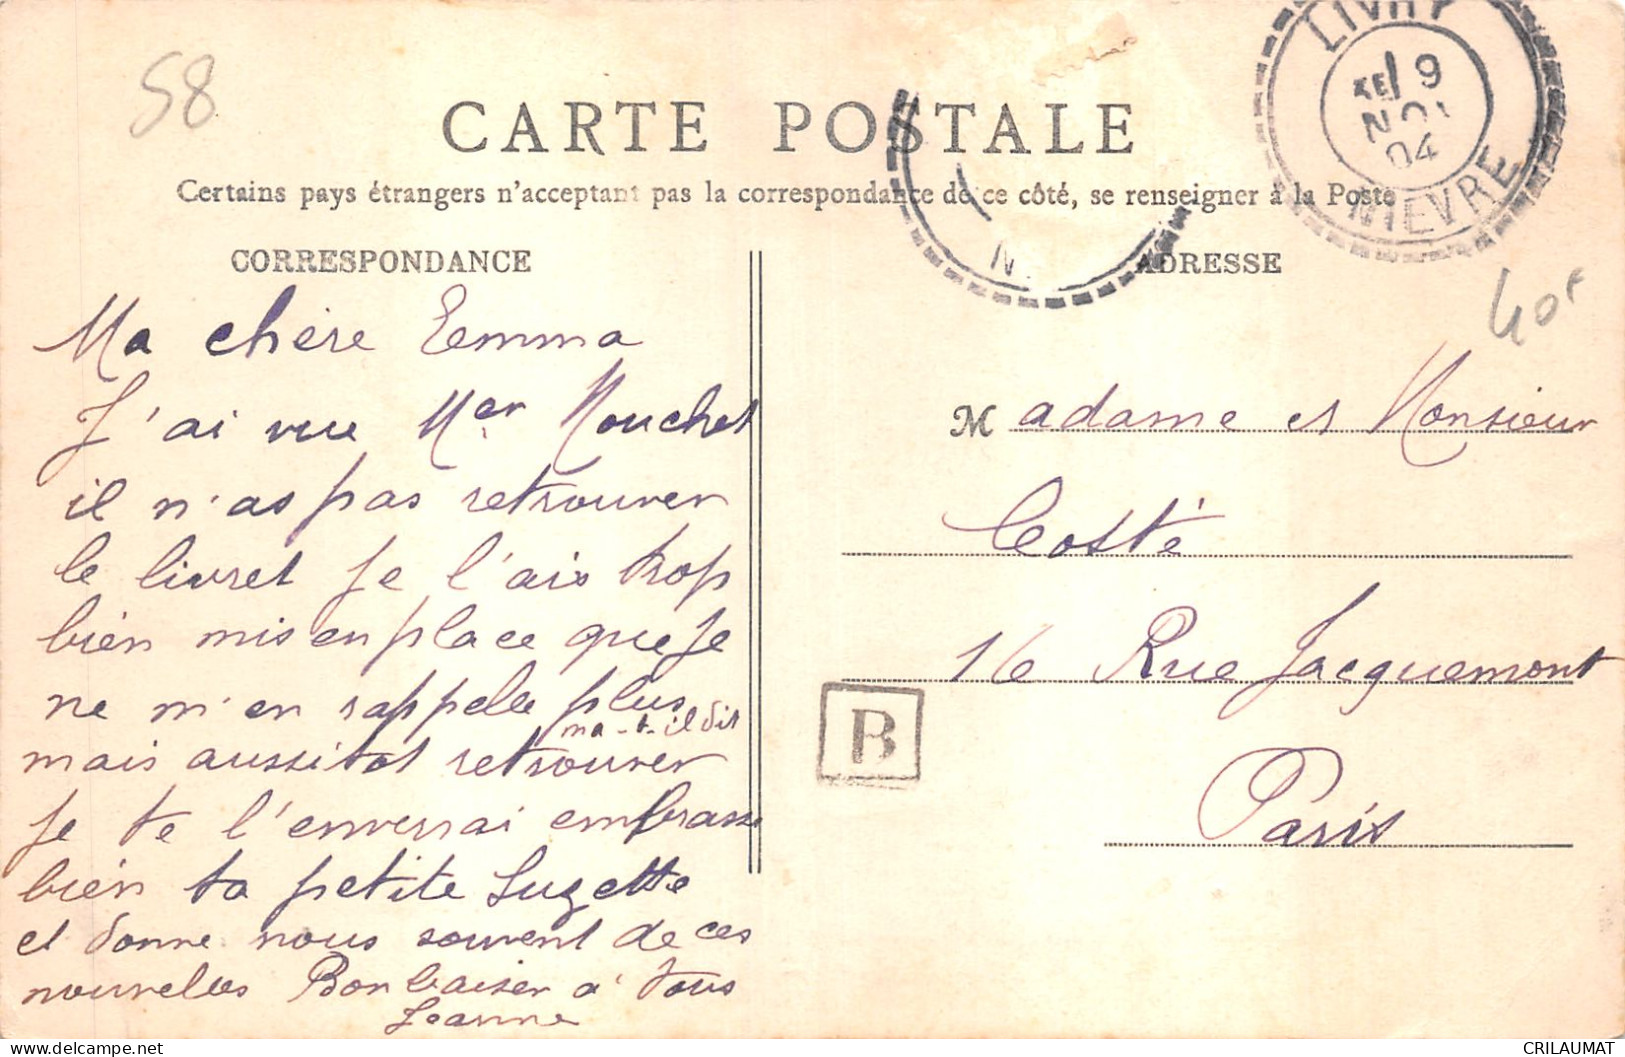 58
CARTE POSTALE
Certains pays étrangers n'acceptant pas la correspondance de ce côté, se renseigner à la Poste
LIVRY
9
04
NIEVRE
CORRESPONDANCE
Ma chère Emma
J'ai vue Mer Mouchet
il n'as pas retrouver
le livret je l'ais trop
bien mis en place que je
ne m'en rappelle plus
ma-t-il dit
mais aussitot retrouver
je te l'enverrai embrasse
bien ta petite Suzette
et donne nous souvent de ces
nouvelles Bon baiser a tous
Jeanne
ADRESSE
40F
Madame et Monsieur
Costé
16 Rue Jacquemont
Paris
B
www.delcampe.net
CRILAUMAT